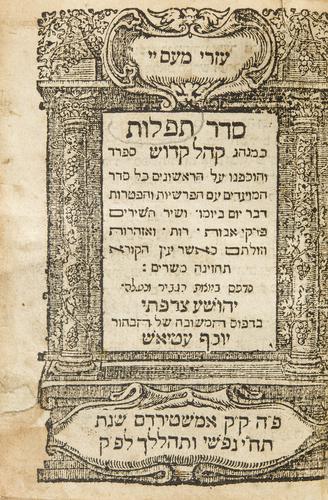 עזרי מעם יי
סדר תפלות
כמנהג קהל קדוש ספרד
והוספנו על הראשונים כל סדר
המועדים עם הפרשיות והפטרות
דבר יום ביומו ושיר השירים
פרקי אבות רות ואזהרות
וזולתם כאשר עין הקורא
תחזינה משרים :
נדפס
יהושע צרפתי
בדפוס המשובח של הבחור
יוסף עטיאש
פ״ה ק״ק אמשטירדם שנת
תחי נפשי ותהללך לפ״ק